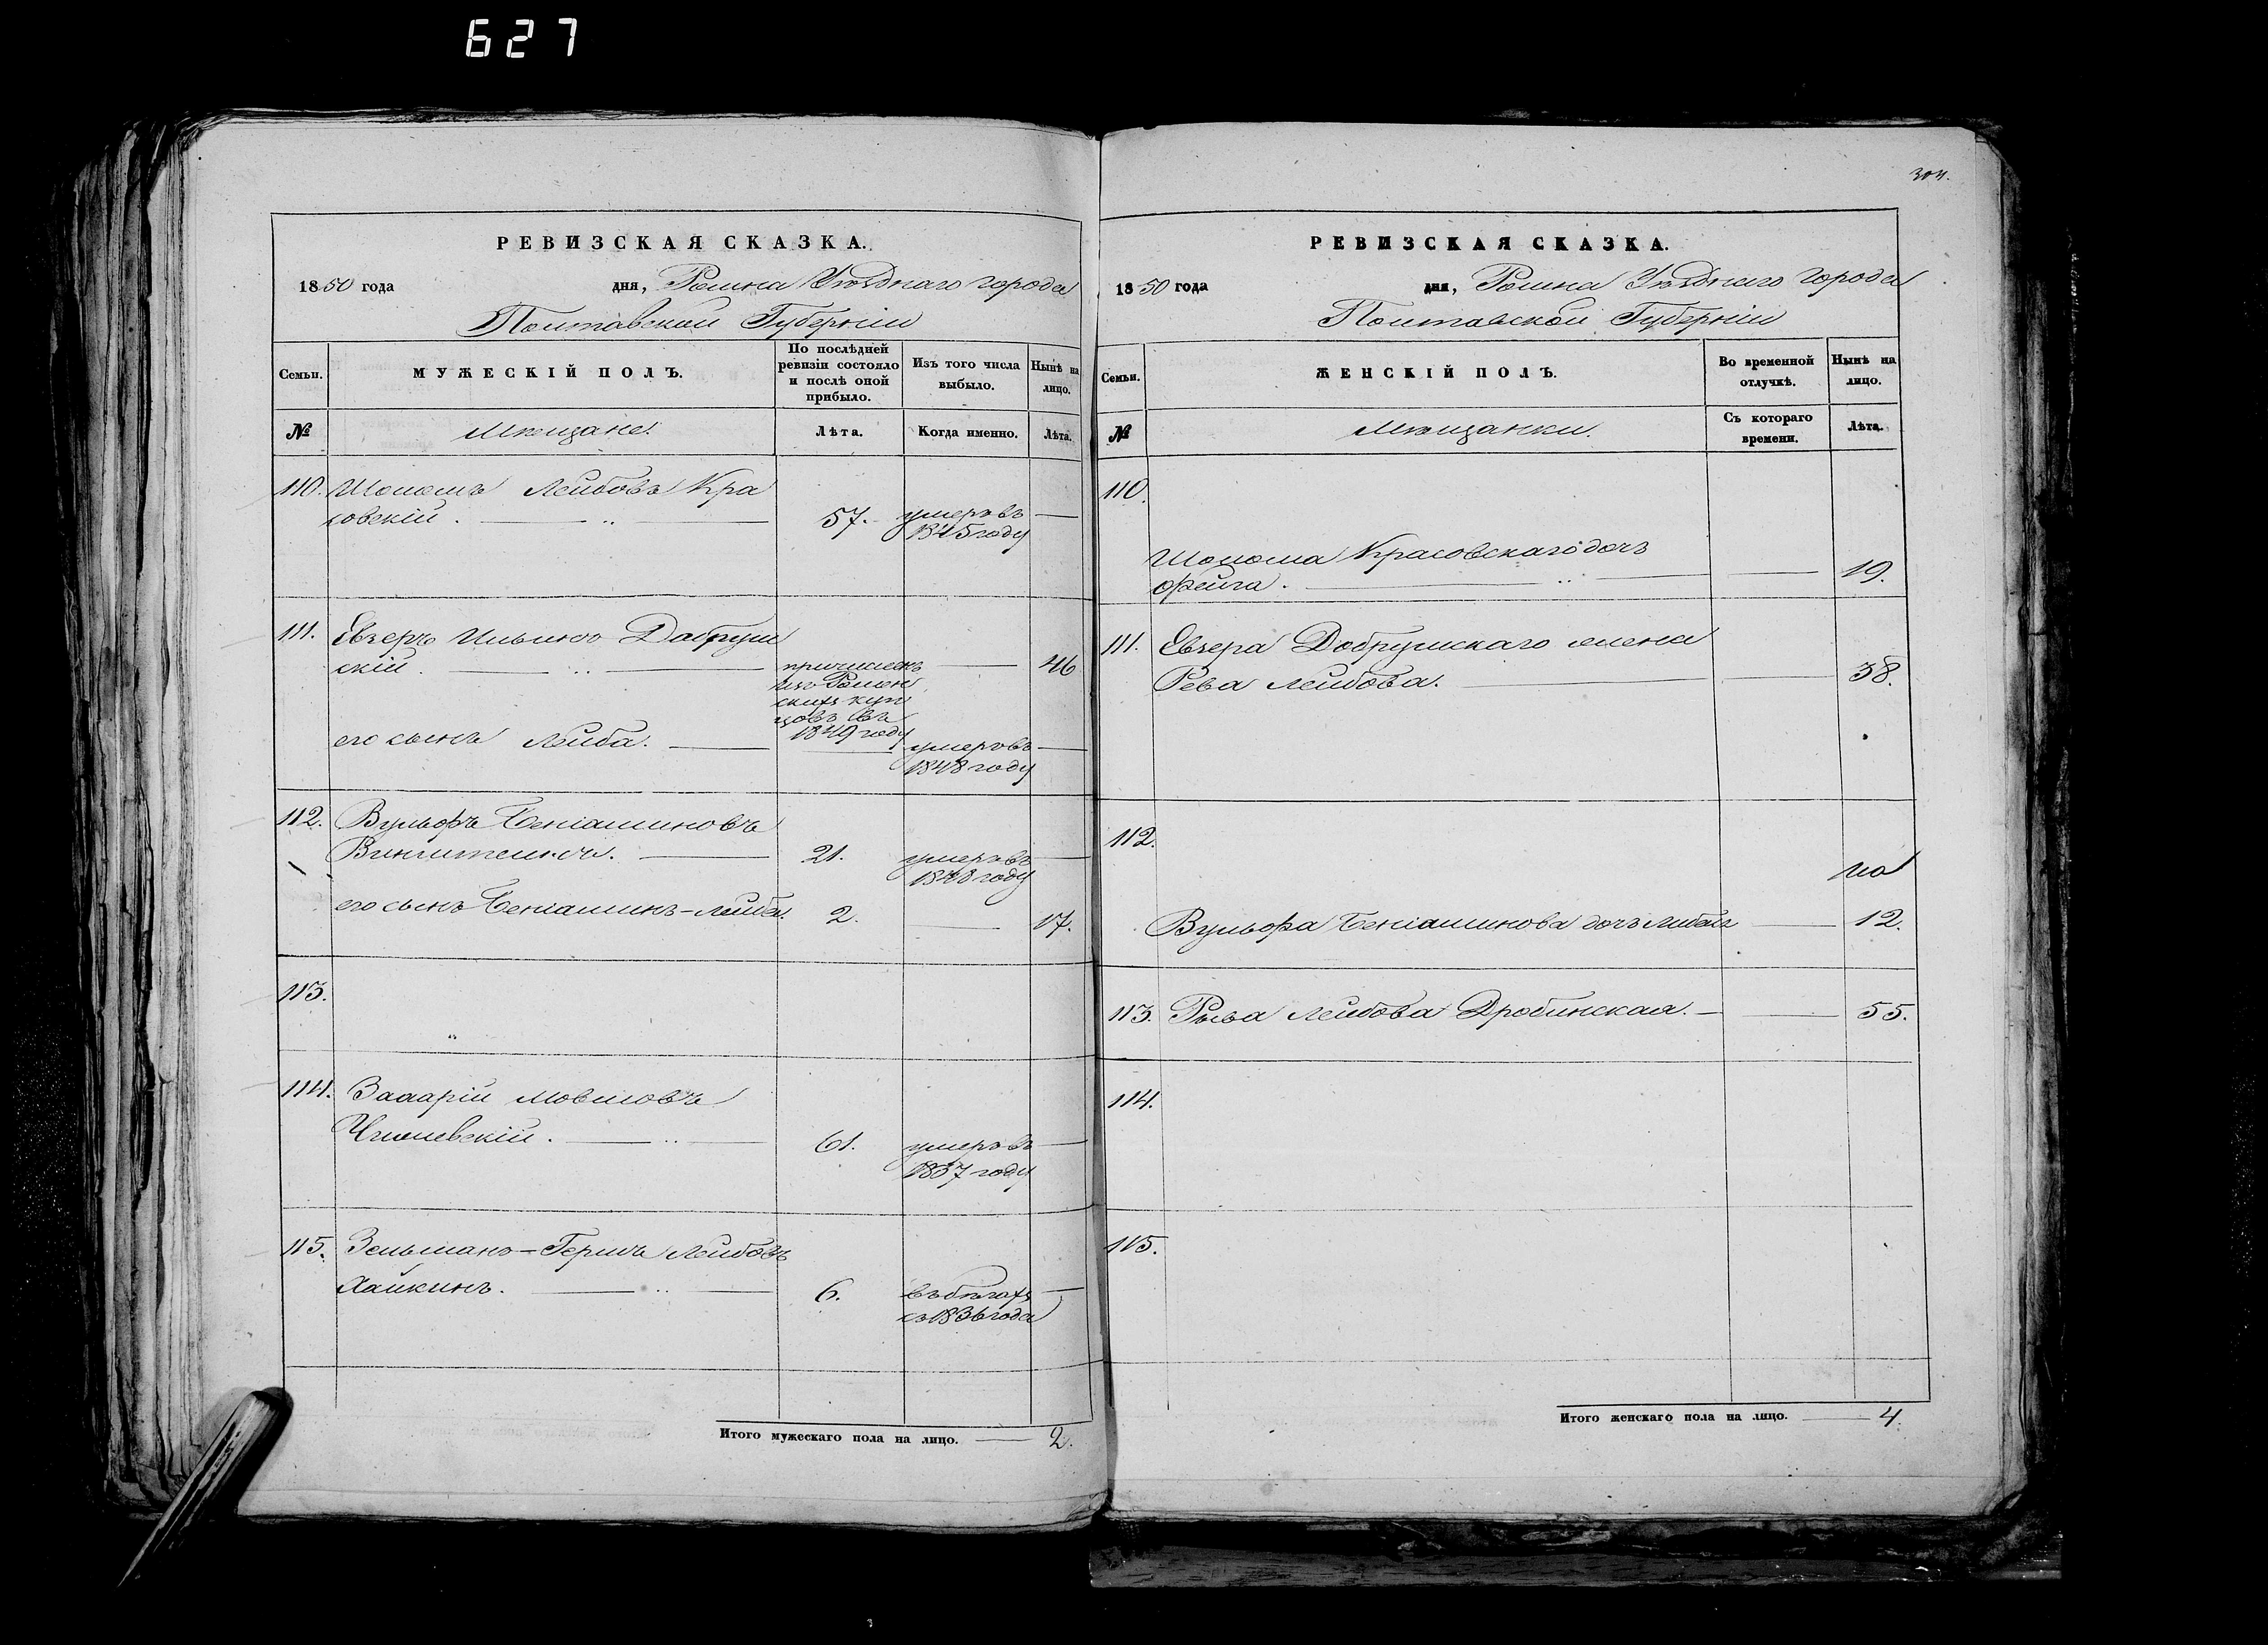 627
304.
РЕВИЗСКАЯ СКАЗКА.
1850 года дня, Ромна Уѣзднаго города
Полтавской Губерніи
Семьи. МУЖЕСКІЙ ПОЛЪ. По послѣдней ревизіи состояло и послѣ оной прибыло. Изъ того числа выбыло. Нынѣ на лицо.
№ Мѣщане. Лѣта. Когда именно. Лѣта.
110. Шоломъ Лейбовъ Кра
совскій. 57. умеръ въ
1845 году
111. Евзеръ Ильинъ Добруш
скій. причисленъ 46
изъ Ромен
скихъ куп
цовъ въ
1849 году
его сынъ Лейба. умеръ въ
1848 году
112. Вульфъ Беніаминовъ
21. умеръ въ
1848 году
его сынъ Беніаминъ-Лейба. 2. 17.
113.
114. Мовшовъ
61. умеръ въ
1837 году
115. Зельманъ-Гершъ Лейбовъ
Хайкинъ. 6. въ бѣгахъ
съ 1836 года
Итого мужескаго пола на лицо. 2.
РЕВИЗСКАЯ СКАЗКА.
1850 года дня, Ромна Уѣзднаго города
Полтавской Губерніи
Семьи. ЖЕНСКІЙ ПОЛЪ. Во временной отлучкѣ. Нынѣ на лицо.
№ Мѣщанки. Съ котораго времени. Лѣта.
110.
Шолома Красовскаго дочь
Фейга. 19.
111. Евзера Добрушскаго жена
Рева Лейбова. 38.
112.
Вульфа Беніаминова дочь 12.
113. Рыва Лейбова Дробинская. 55.
114.
115.
Итого женскаго пола на лицо. 4.